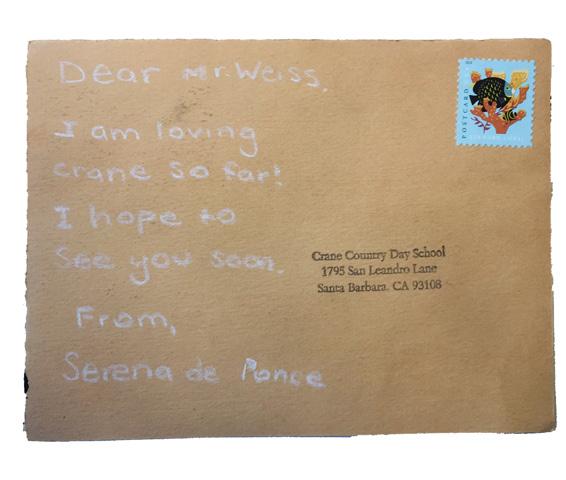 Dear Mr. Weiss,
I am loving
crane so far!
I hope to
See you soon.
From,
Serena de Ponce
POSTCARD
Crane Country Day School
1795 San Leandro Lane
Santa Barbara, CA 93108